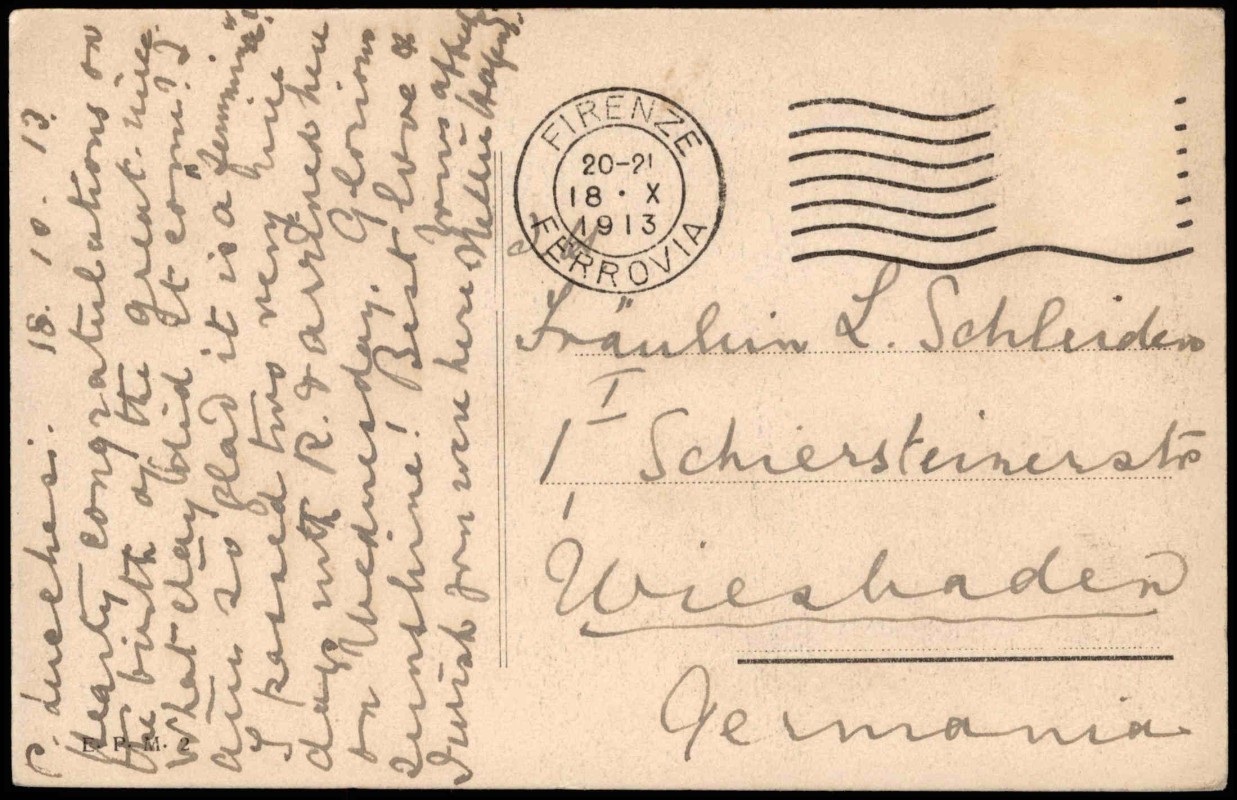 P. Lucchesi. 18. 10. 13.
Hearty congratulations on
the birth of the great-niece.
What day did "it come"? I
am so glad it is a "feminine".
I passed two very nice
days with R. & arrived here
on Wednesday. Glorious
sunshine! Best love &
I wish you were here
Yours affly
E. P. M. 2
FIRENZE
20-21
18 · X
1913
FERROVIA
Fräulein L. Schleiden
I
1 Schiersteinerstr
Wiesbaden
Germania